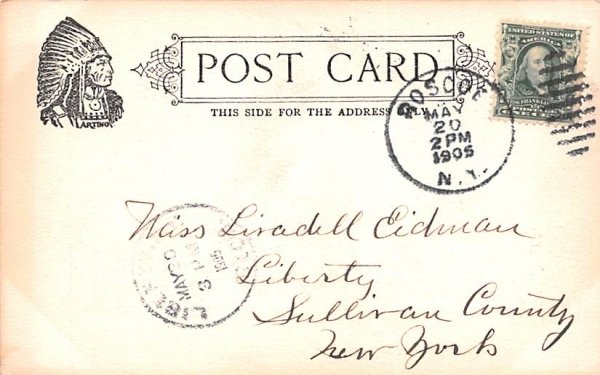 POST CARD
THIS SIDE FOR THE ADDRESS ONLY
ARTINO
UNITED STATES OF AMERICA
ROSCOE
MAY
20
2 PM
1905
N.Y.
Miss Liradell Eidman
Liberty
Sullivan County
New York
MAY 20
3 P
1905